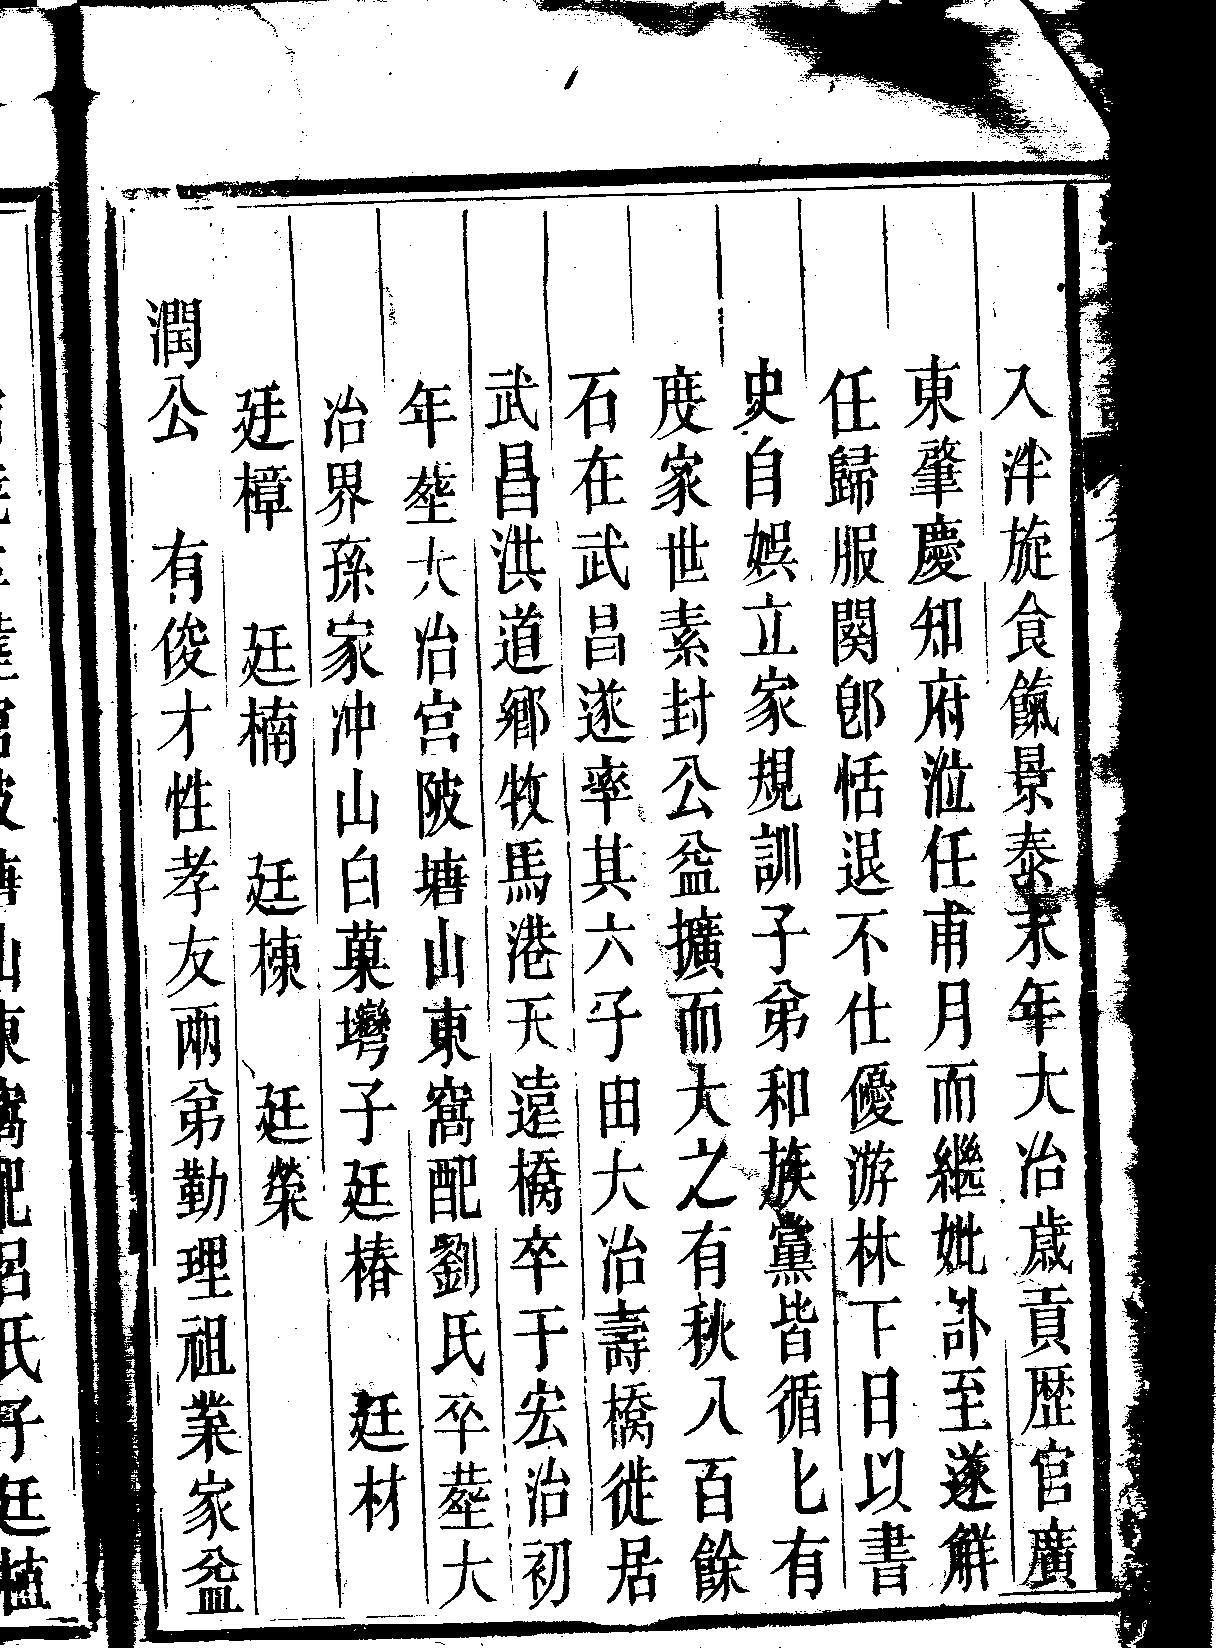 入泮旋食餼景泰末年大冶歲貢歴官廣
東肇慶知府涖任甫月而繼妣訃至遂觧
任歸服闋卽恬退不仕優游林下日以書
史自娯立家規訓子弟和族黨皆循匕有
度家世素封公益擴而大之有秋八百餘
石在武昌遂率其六子由大冶壽橋徙居
武昌洪道鄉牧馬港天遠橋卒于宏治初
年塟大冶宫陂塘山東窩配劉氏卒塟大
冶界孫家冲山白菓灣子廷椿 廷材
廷樟 廷楠 廷棟 廷榮
潤公 有俊才性孝友兩弟勤理祖業家益
塘山東窩配呂氏子廷植